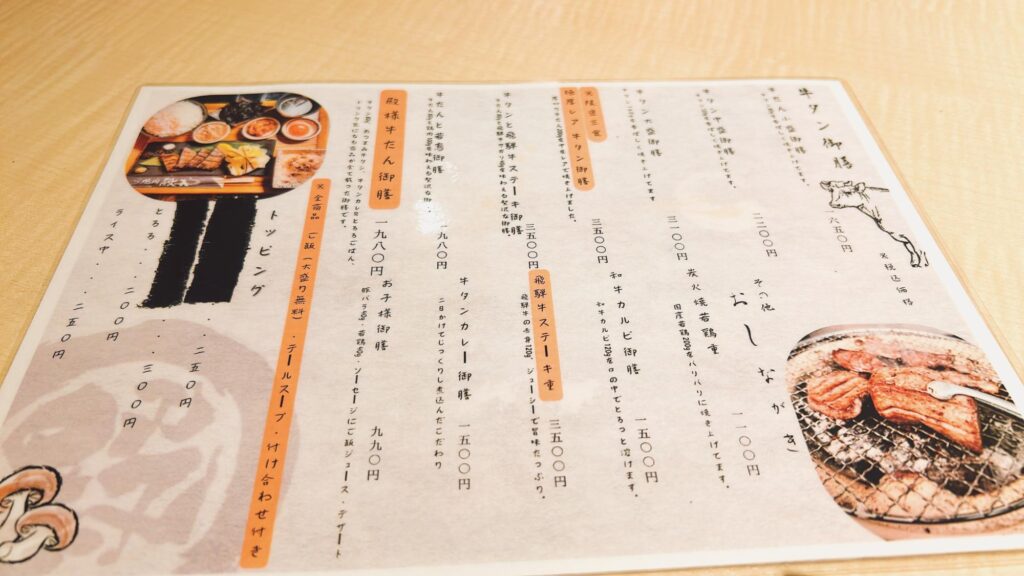 牛タン御膳
※税込価格
牛たん小盛御膳
一六五〇円
牛タン中盛御膳
二二〇〇円
牛タン大盛御膳
三一〇〇円
極厚レア牛タン御膳
三五〇〇円
牛タンと飛騨牛ステーキ御膳
三五〇〇円
牛たんと若鶏御膳
一九八〇円
殿様牛たん御膳
一九八〇円
ドリンク
その他
おしながき
炭火焼若鶏重
一一〇〇円
国産若鶏200gをパリパリに焼き上げてます。
和牛カルビ御膳
一五〇〇円
和牛カルビ120gを口の中でとろっと溶けます。
飛騨牛ステーキ重
三五〇〇円
飛騨牛の赤身120g ジューシーで旨味たっぷり。
牛タンカレー御膳
一五〇〇円
二日かけてじっくりし煮込んだこだわり
お子様御膳
九九〇円
豚バラ40g・若鶏40g・ソーセージにご飯ジュース・デザート
※全商品 ご飯(大盛り無料)・テールスープ・付け合わせ付き
トッピング
・・二五〇円
・・三〇〇円
とろろ・・二〇〇円
ライス中・・・二五〇円